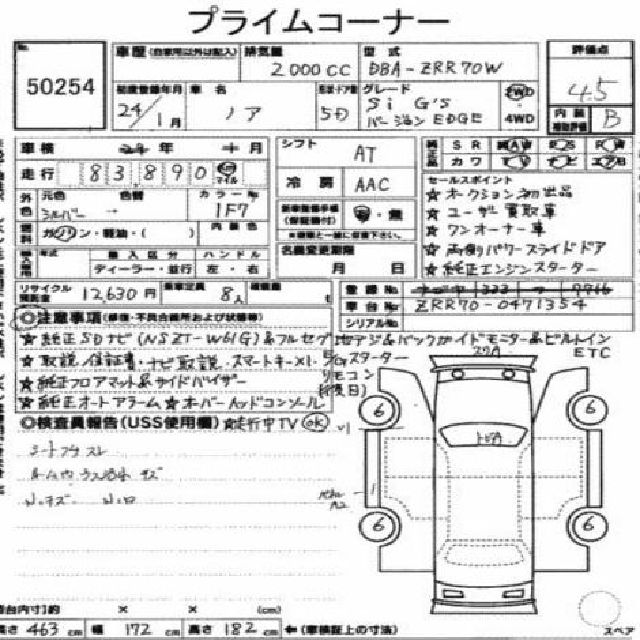 プライムコーナー
No.
50254
車歴 (自家用以外は記入)
排気量
2000 CC
型式
DBA-ZRR70W
評価点
4.5
初度登録年月
24/1月
車名
ノア
ドア数
5D
グレード
Si G'S
バージョンEDGE
2WD
4WD
内装
補助評価
B
車検
年
月
シフト
AT
純正品
SR
AW
PS
PW
カワ
TV
ナビ
エアB
走行
83,890
マイル
冷房
AAC
セールスポイント
☆オークション初出品
☆ユーザー買取車
☆ワンオーナー車
☆両側パワースライドドア
☆純正エンジンスターター
外色
元色
シルバー
→
色替
カラーNo.
1F7
燃料
ガソリン・軽油・( )
内装色
有・無
名義変更期限
月 日
輸入区分
ディーラー・並行
ハンドル
左・右
リサイクル
預託金
12,630円
乗車定員
8人
積載量
t
登録No.
車台No.
ZRR70-0471354
シリアルNo.
◎注意事項 (修復・不具合箇所および状態等)
☆純正SDナビ(NSZT-W61G)&フルセグ地デジ&バックガイドモニター&ビルトイン
ETC
☆取説、保証書、ナビ取説、スマートキー×1、Egスターター
リモコン
(後日)
☆純正フロアマット&サイドバイザー
☆純正オートアラーム☆オーバーヘッドコンソール
◎検査員報告(USS使用欄)☆走行中TV OK
シートコゲ スレ
キズ
6
6
6
6
車台内寸)約 × × (cm)
長さ 463 cm 幅 172 cm 高さ 182 cm ←(車検証上の寸法)
スペア